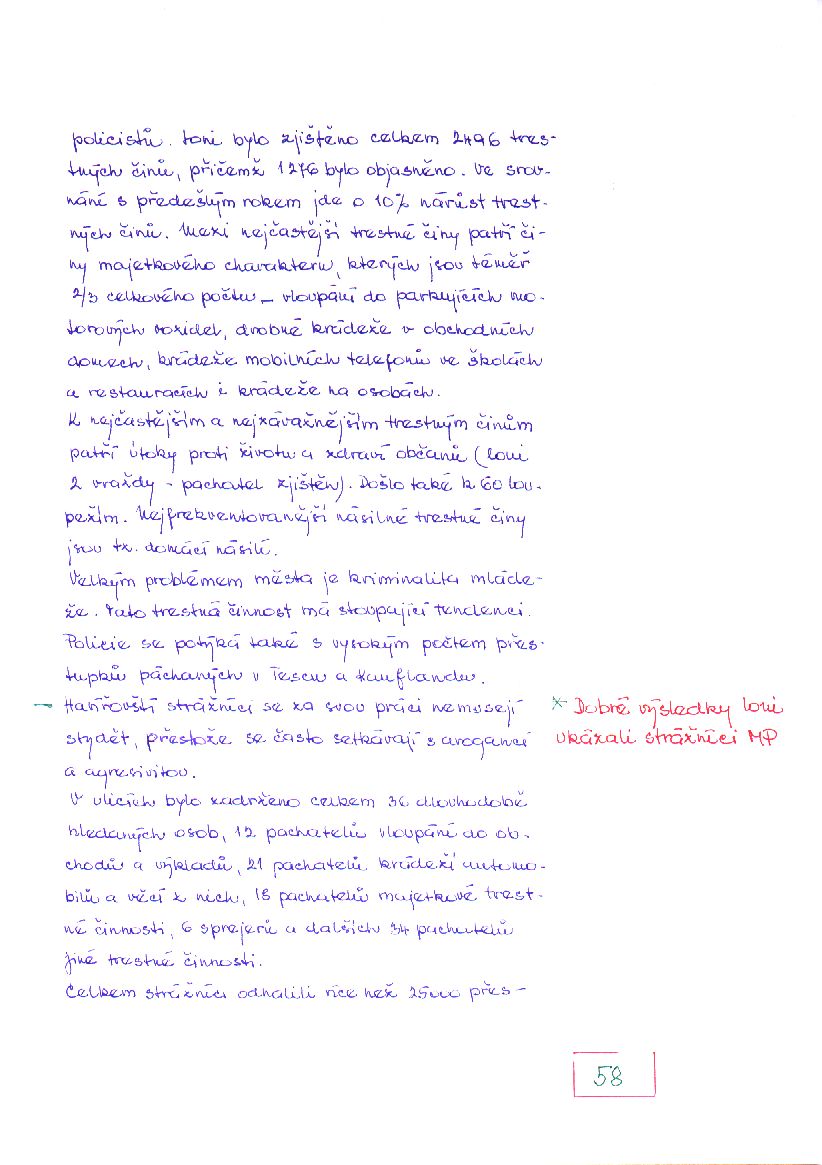 policistů. Loni bylo zjištěno celkem 2496 tres-
tných činů, přičemž 1276 bylo objasněno. Ve srov-
nání s předešlým rokem jde o 10% nárůst trest-
ných činů. Mezi nejčastější trestné činy patří či-
ny majetkového charakteru, kterých jsou téměř
2/3 celkového počtu – vloupání do parkujících mo-
torových vozidel, drobné krádeže v obchodních
domech, krádeže mobilních telefonů ve školách
a restauracích i krádeže na osobách.
K nejčastějším a nejzávažnějším trestným činům
patří útoky proti životu a zdraví občanů (loni
2 vraždy – pachatel zjištěn). Došlo také k 60 lou-
pežím. Nejfrekventovanější násilné trestné činy
jsou tz. domácí násilí.
Velkým problémem města je kriminalita mláde-
že. Tato trestná činnost má stoupající tendenci.
Policie se potýká také s vysokým počtem přes-
tupků páchaných v Tescu a Kauflandu.
– Havířovští strážníci se za svou práci nemusejí
stydět, přestože se často setkávají s arogancí
a agresivitou.
* Dobré výsledky loni
ukázali strážníci MP
V ulicích bylo zadrženo celkem 36 dlouhodobě
hledaných osob, 12 pachatelů vloupání do ob-
chodů a výkladů, 21 pachatelů krádeží automo-
bilů a věcí z nich, 18 pachatelů majetkové trest-
né činnosti, 6 sprejerů a dalších 34 pachatelů
jiné trestné činnosti.
Celkem strážníci odhalili více než 25000 přes-
58